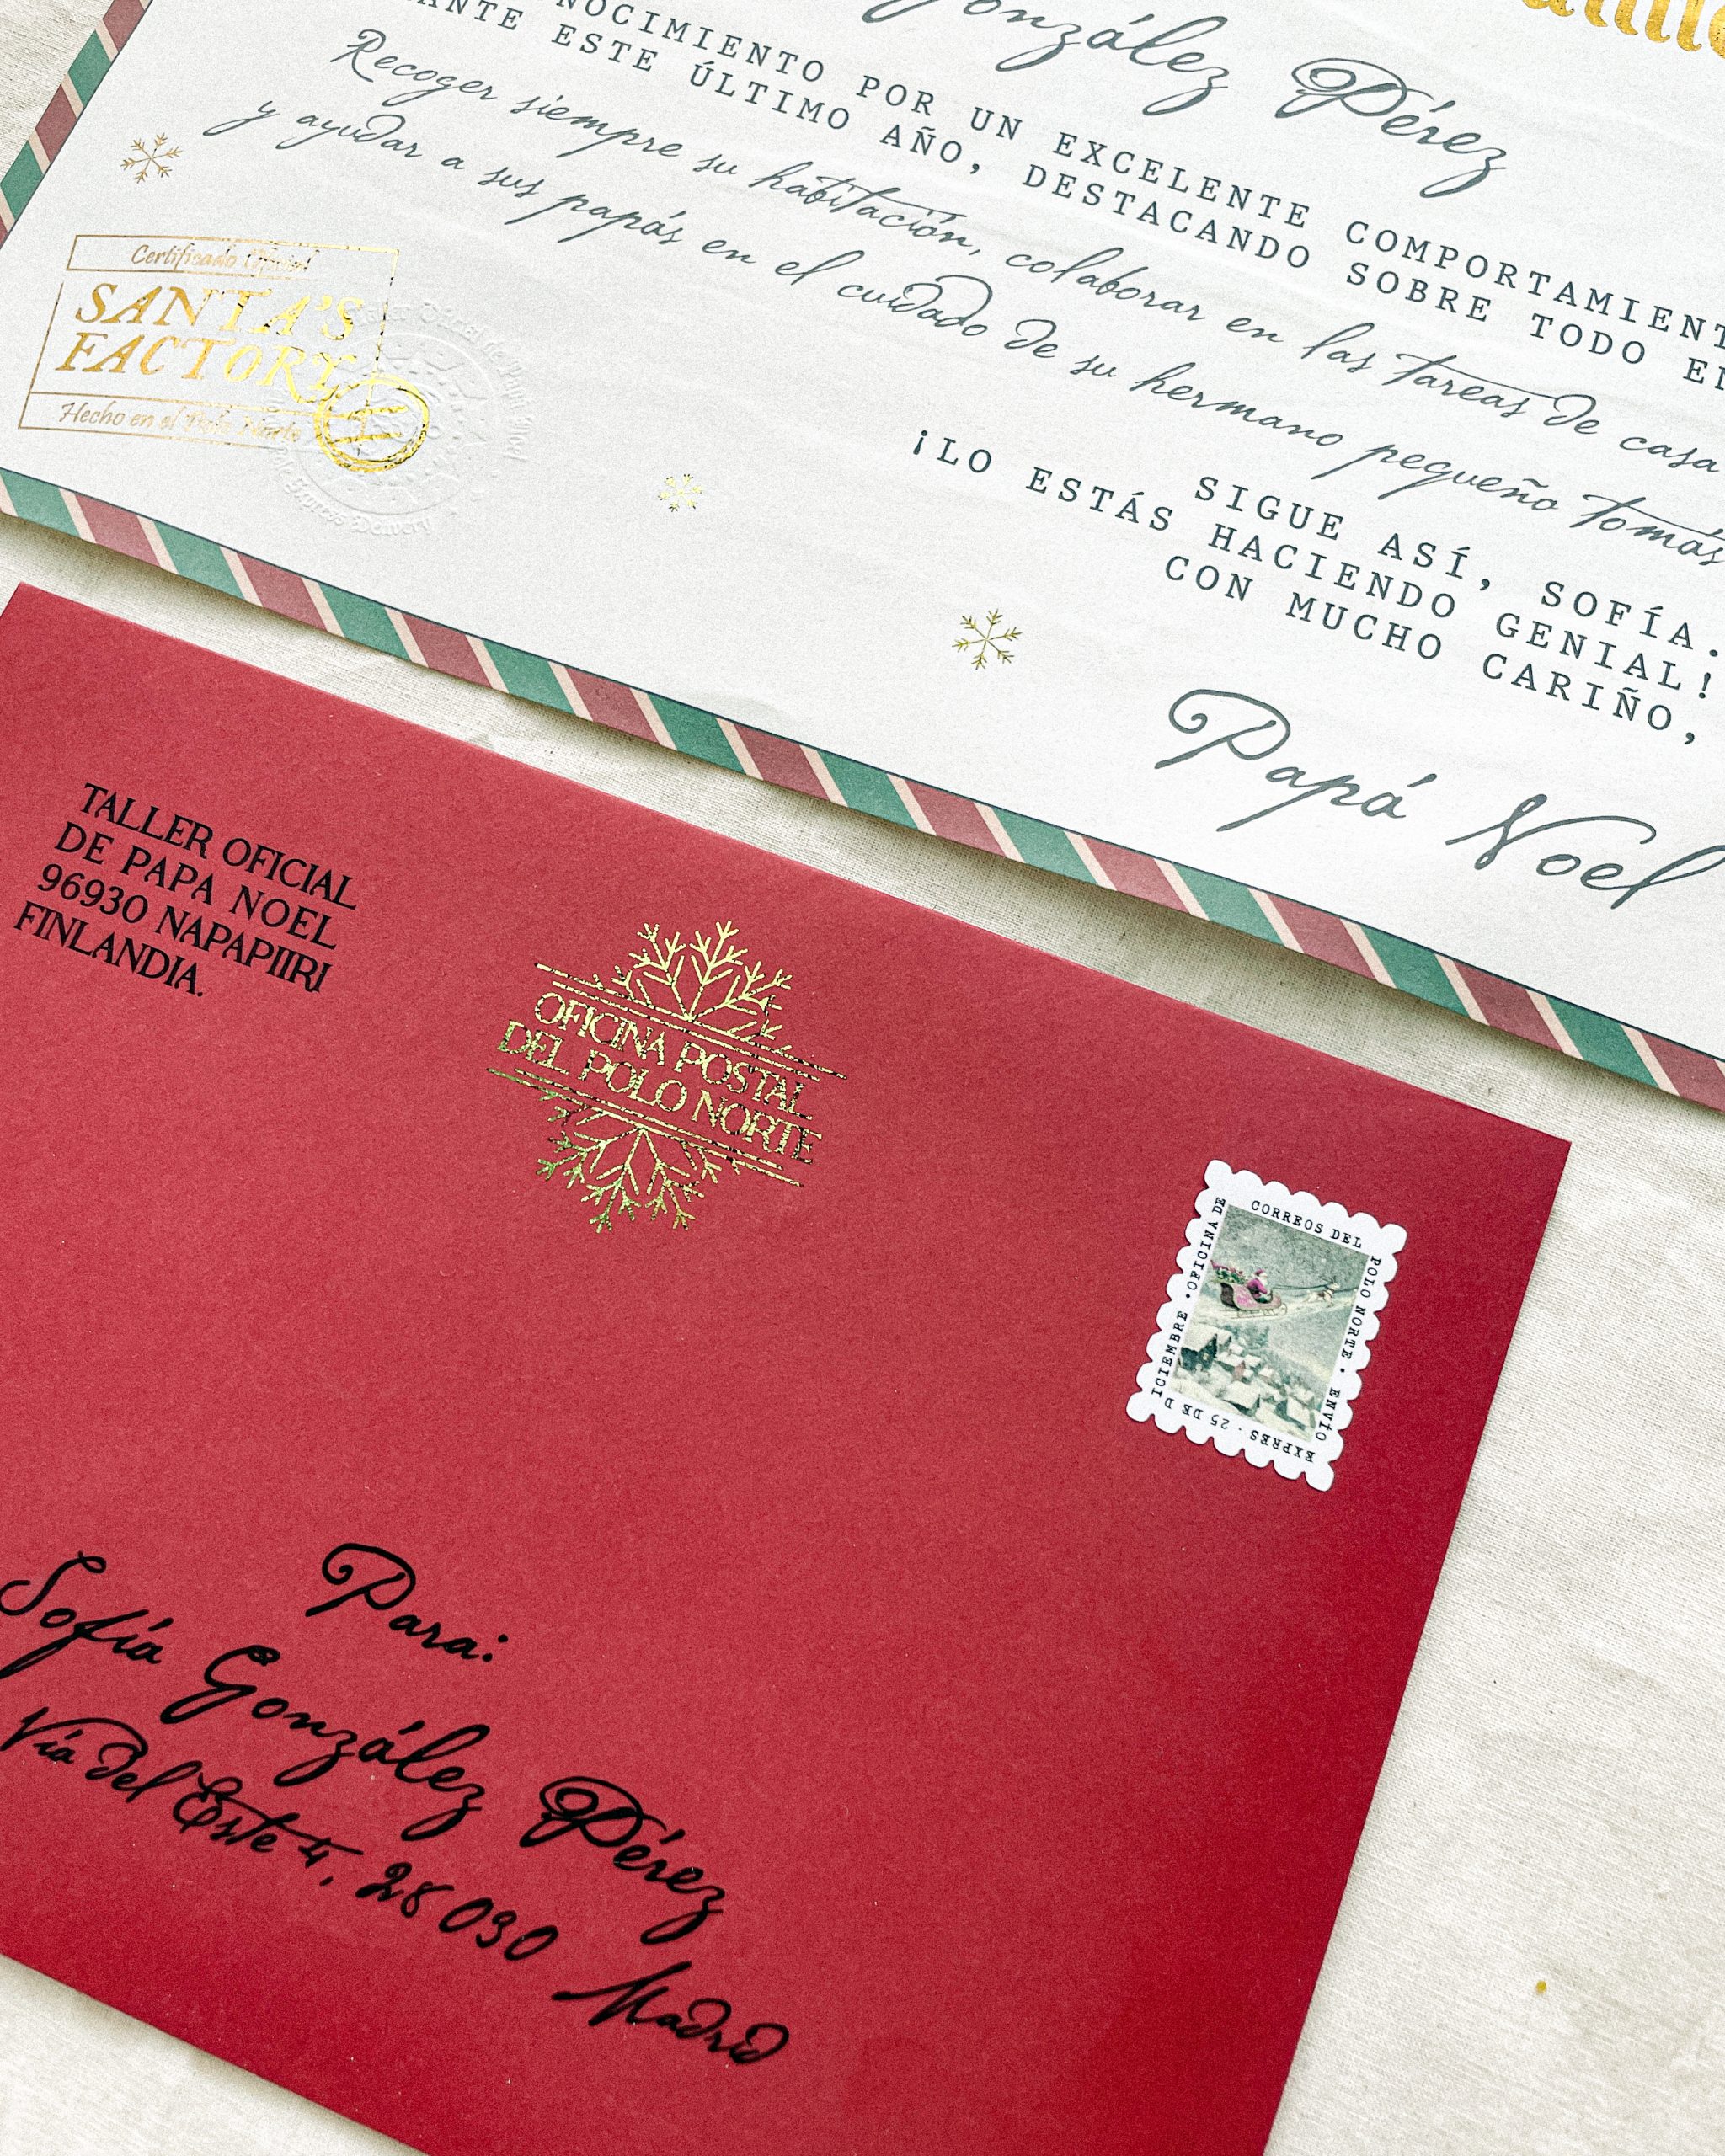 González Pérez
POR UN EXCELENTE
ESTE ÚLTIMO AÑO, DESTACANDO SOBRE TODO
Recoger siempre su habitación, colaborar en las tareas de casa
y ayudar a sus papás en el cuidado de su hermano pequeño tomás
SIGUE ASÍ, SOFÍA.
¡LO ESTÁS HACIENDO GENIAL!
CON MUCHO CARIÑO,
Papá Noel
Certificado Oficial
SANTA'S
FACTORY
Hecho en el Polo Norte
Express Delivery
TALLER OFICIAL
DE PAPA NOEL
96930 NAPAPIIRI
FINLANDIA.
OFICINA POSTAL
DEL POLO NORTE
OFICINA DE CORREOS DEL POLO NORTE • ENVÍO EXPRES · 25 DE DICIEMBRE •
Para:
Sofía González Pérez
Vía del Este 4, 28030 Madrid